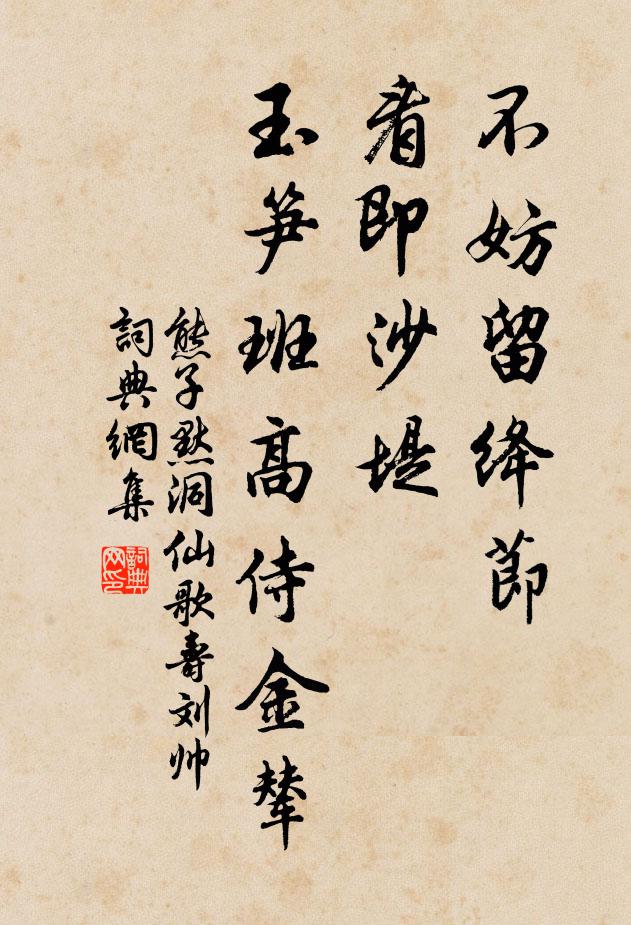 不妨留绛節
看即沙堤
玉笋班高侍金輦
熊子默洞仙歌寿刘帅
詞典網集
詞典网印